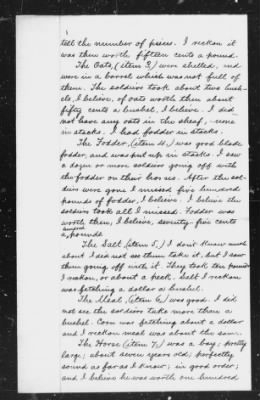 tell the number of pieces. I reckon it
was then worth fifteen cents a pound.
The Oats, (item 3,) were shelled, and
were in a barrel which was not full of
them. The soldiers took about two bush-
els, I believe, of oats worth then about
fifty cents a bushel, I believe. I did
not have any oats in the sheaf, - none
in stacks. I had fodder in stacks.
The Fodder, (item 4,) was good blade
fodder, and was put up in stacks. I saw
a dozen or more soldiers going off with
the fodder on their horses. After the sol-
diers were gone I missed five hundred
pounds of fodder, I believe. I believe the
soldiers took all I missed. Fodder was
worth then, I believe, seventy five cents
a hundred pounds.
The Salt (item 5,) I don't know much
about. I did not see them take it, but I saw
them going off with it. They took ten pounds
I reckon, or about a peck. Salt I reckon
was fetching a dollar a bushel.
The Meal, (item 6,) was good. I did
not see the soldiers take more than a
bushel. Corn was fetching about a dollar
and I reckon meal was about the same.
The Horse (item 7,) was a bay; pretty
large; about seven years old; perfectly
sound as far as I know; in good order;
and I believe he was worth one hundred